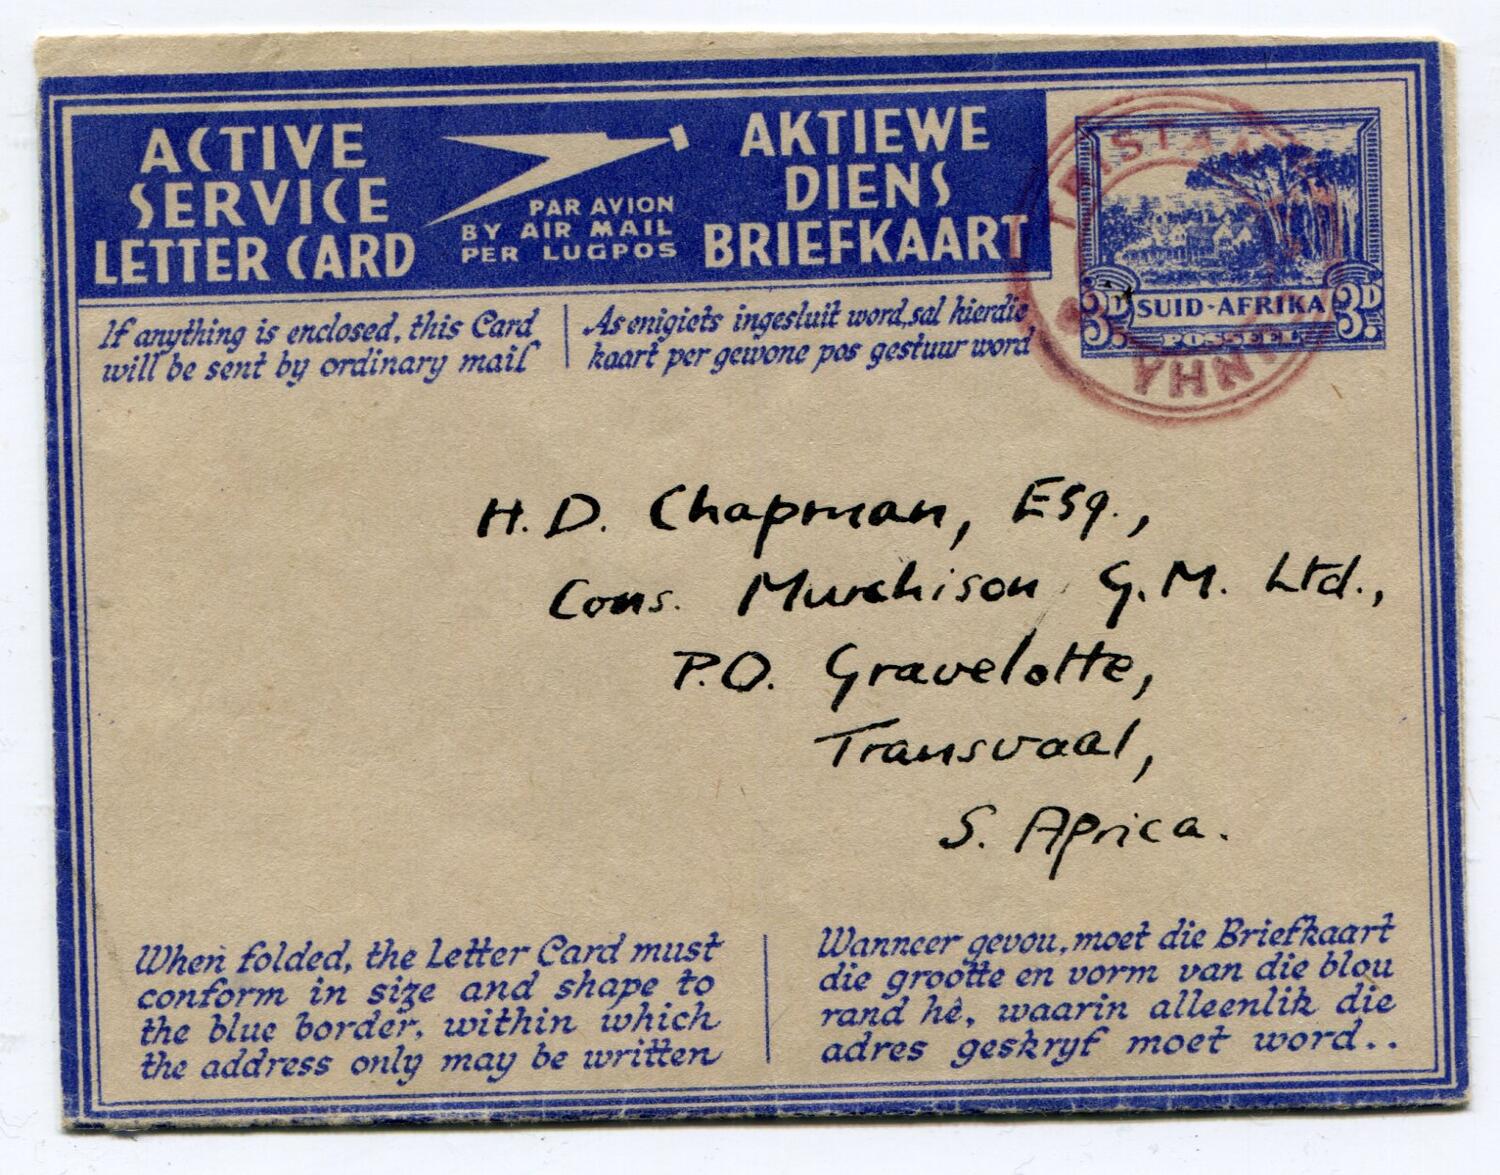 ACTIVE
SERVICE
LETTER CARD
PAR AVION
BY AIR MAIL
PER LUGPOS
AKTIEWE
DIENS
BRIEFKAART
SUID-AFRIKA
3D. 3D.
POSSEEL
TRISTAN
If anything is enclosed, this Card
will be sent by ordinary mail
As enigiets ingesluit word, sal hierdie
kaart per gewone pos gestuur word
H. D. Chapman, Esq.,
Cons. Murchison G.M. Ltd.,
P.O. Gravelotte,
Transvaal,
S. Africa.
When folded, the Letter Card must
conform in size and shape to
the blue border, within which
the address only may be written
Wanneer gevou, moet die Briefkaart
die grootte en vorm van die blou
rand hê, waarin alleenlik die
adres geskryf moet word..